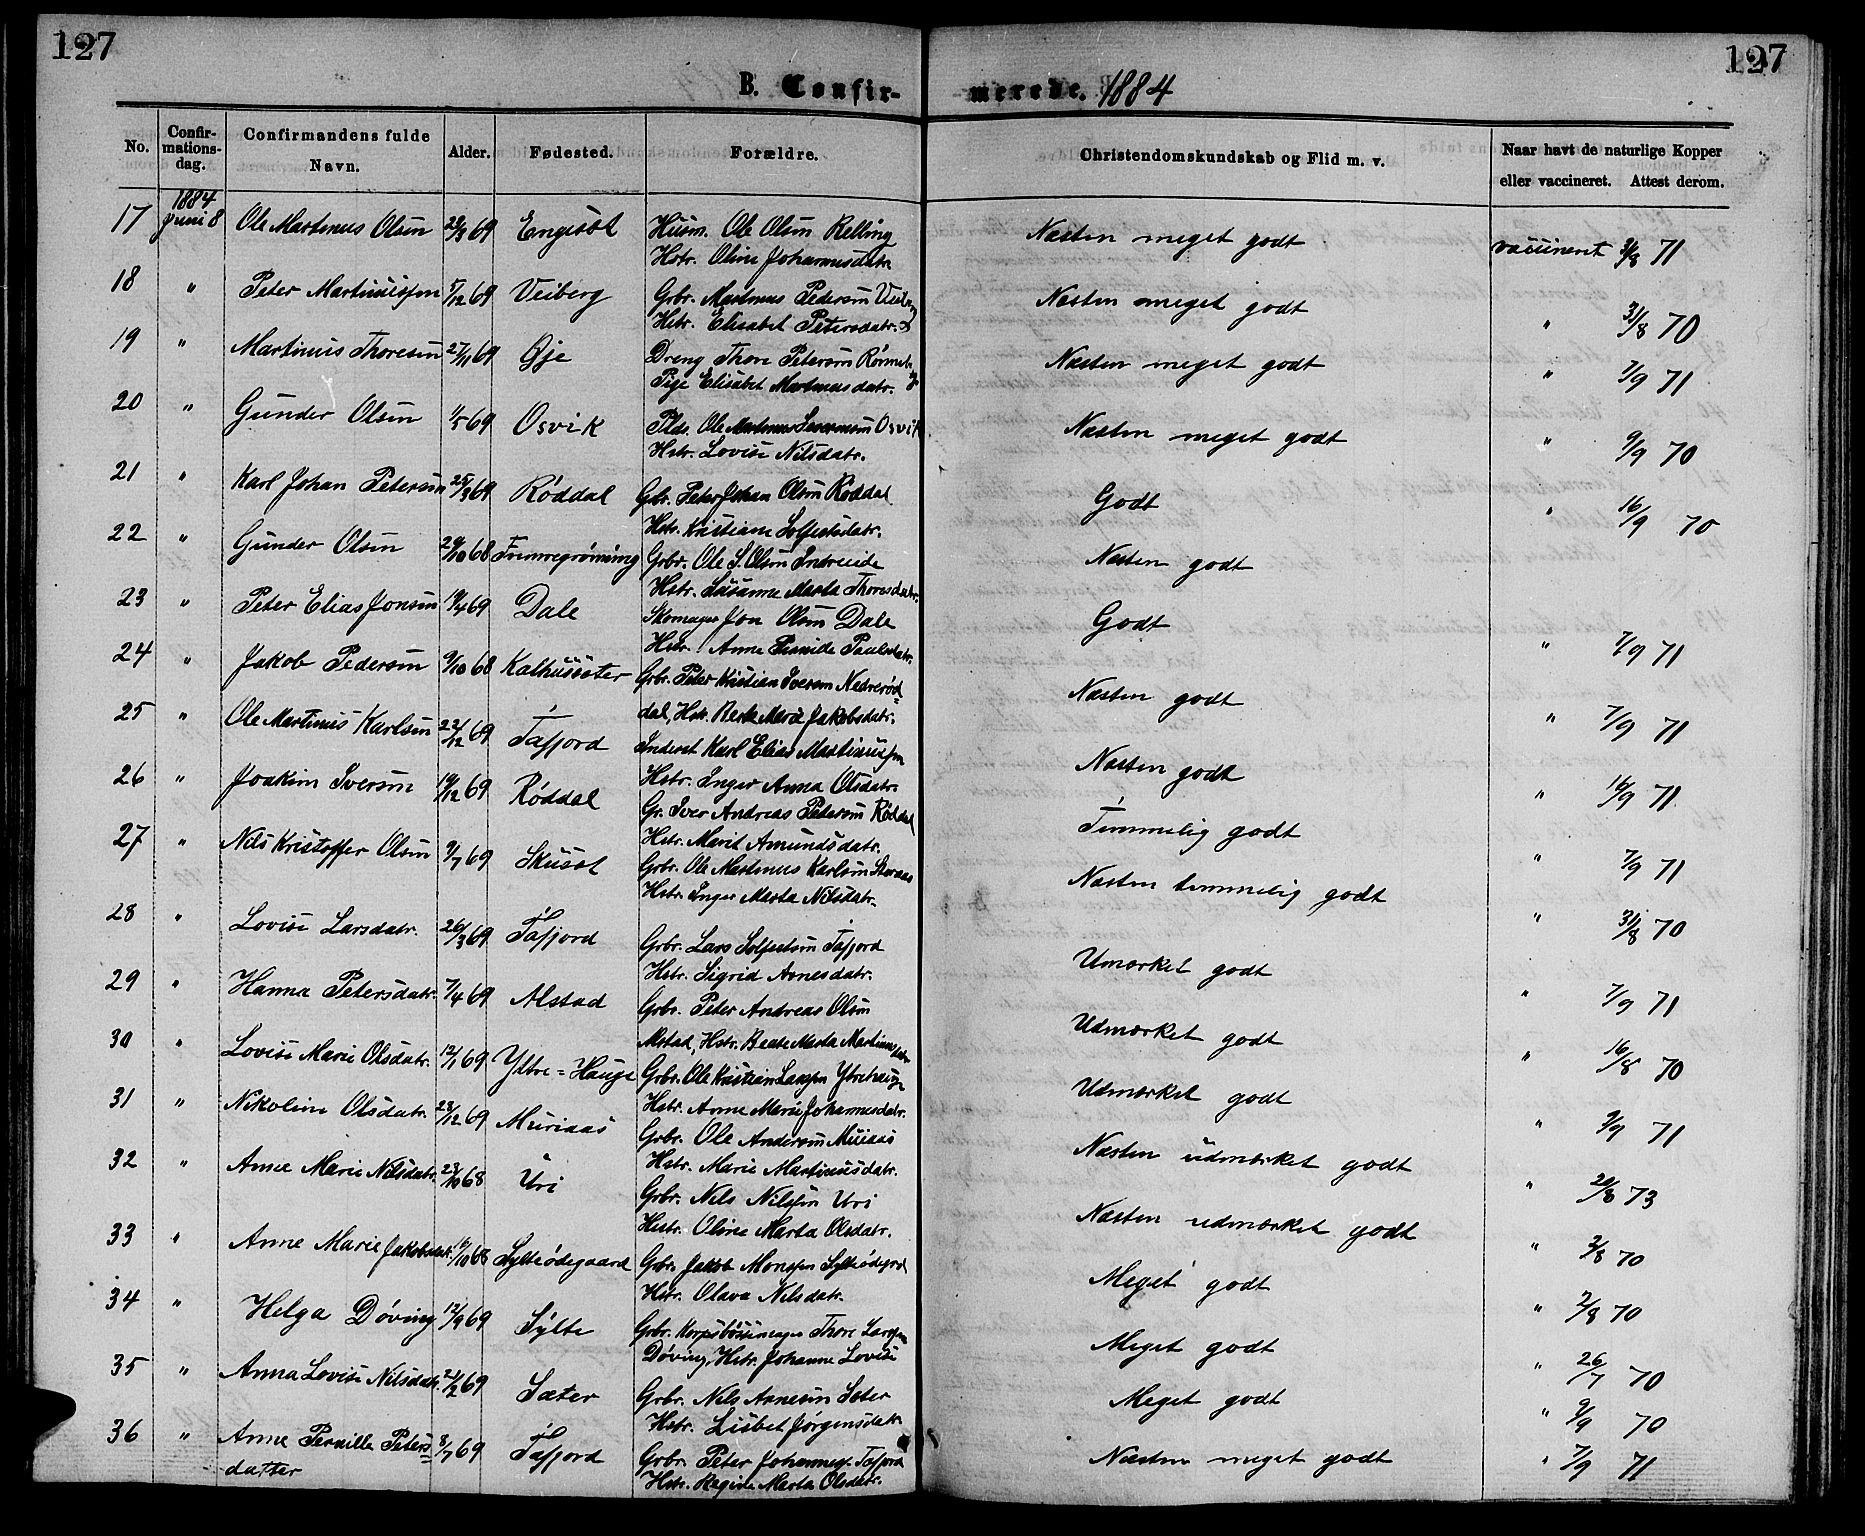 127
127
B. Confir-
merede. 1884
No. Confir-mations-dag. Confirmandens fulde Navn. Alder. Fødested. Forældre. Christendomskundskab og Flid m. v. Naar havt de naturlige Kopper eller vaccineret. Attest derom.
1884
17 Juni 8 Ole Martinus Olsen 69 Engeset Husm. Ole Olsen Relling Næsten meget godt vaccineret 71
Hstr. Oline Johannesdatr.
18 " Peter Martinussen 7/12 69 Veiberg Grbr. Martinus Pedersen Næsten meget godt " 31/8 70
Hstr. Elisabet Petersdatr.
19 " Martinus Thoresen 27/11 69 Øje Dreng Thore Petersen Næsten meget godt " 7/9 71
Pige Elisabet Martinusdatr.
20 " Gunder Olsen 1/5 69 Osvik Plds. Ole Martinus Osvik Næsten meget godt " 9/9 70
Hstr. Lovise Nilsdatr.
21 " Karl Johan Petersen 25/3 69 Røddal Grbr. Peter Johan Olsen Røddal Godt " 16/9 70
Hstr. Kristiane Solfestsdatr.
22 " Gunder Olsen 68 Grbr. Ole S. Olsen Indreeide Næsten godt
Hstr. Susanne Marta Thoresdatr.
23 " Peter Elias Jonsen 69 Dale Skomager Jon Olsen Dale Godt " 7/9 71
Hstr. Anne Paulsdatr.
24 " Jakob Pedersen 9/10 68 Kalhussæter Grbr. Peter Kristian Iversen Nedrerød= Næsten godt " 7/9 71
dal, Hstr. Berte Marie Jakobsdatr.
25 " Ole Martinus Karlsen 22/12 69 Tafjord Inderst Karl Elias Martinussen Næsten godt " 16/9 71
Hstr. Inger Anna Olsdatr.
26 " Joakim Iversen 19/12 69 Røddal Gr. Iver Andreas Petersen Røddal Temmelig godt " 7/9 71
Hstr. Marit Amundsdatr.
27 " Nils Kristoffer Olsen 9/7 69 Skuset Grbr. Ole Martinus Karlsen Næsten temmelig godt " 31/8 70
Hstr. Inger Marta Nilsdatr.
28 " Lovise Larsdatr. 26/3 69 Tafjord Grbr. Lars Solfestsen Tafjord Udmærket godt " 7/9 71
Hstr. Sigrid Arnesdatr.
29 " Hanna Petersdatr. 7/4 69 Alstad Grbr. Peter Andreas Olsen Udmærket godt " 16/8 70
Alstad, Hstr. Beate Marta
30 " Lovise Marie Olsdatr. 12/1 69 Yttre=Hauge Grbr. Ole Kristian Larssen Ytrehauge Udmærket godt " 71
Hstr. Anne Marie Johannesdatr.
31 " Nikoline Olsdatr. 23/12 69 Muriaas Grbr. Ole Andersen Muriaas Næsten udmærket godt " 73
Hstr. Marie Martinusdatr.
32 " Anne Marie Nilsdatr. 23/10 68 Uri Grbr. Nils Nilssen Uri Næsten udmærket godt " 2/8 70
Hstr. Oline Marta Olsdatr.
33 " Anne Marie Jakobsdatr. 16/10 68 Sylteødegaard Grbr. Jakob Monssen Sylteødegrd Meget godt " 2/8 70
Hstr. Olava Nilsdatr.
34 " Helga Døving 12/9 69 Sylte Grbr. Korpsbøssemager Thore Larssen Meget godt " 26/7 70
Døving, Hstr. Johanne Lovise
35 " Anna Lovise Nilsdatr. 24/2 69 Sæter Grbr. Nils Arnesen Sæter Meget godt " 9/9 70
Hstr. Lisbet Jørgensdatr.
36 " Anne Pernille Peters= 8/7 69 Tafjord Grbr. Peter Johanness. Tafjord Næsten meget godt " 7/9 71
datter Hstr. Regine Marta Olsdatr.